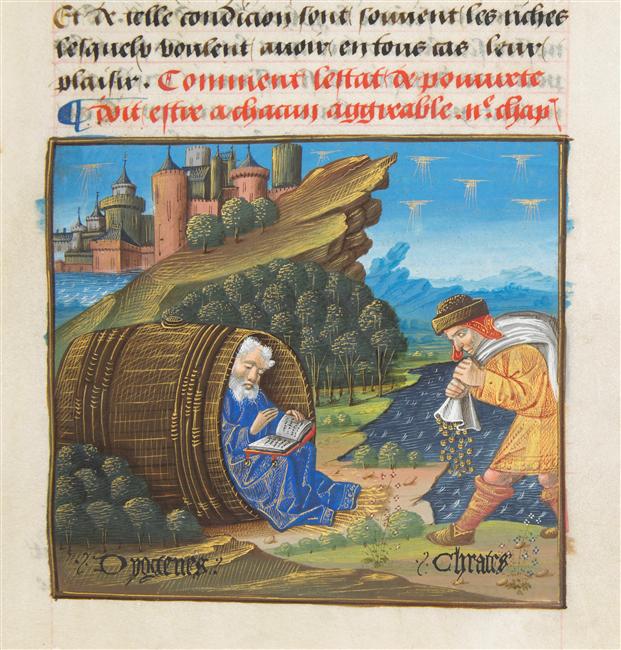 Et de telle condicion sont souvent les riches
lesquelz veulent avoir en tous cas leur
plaisir. Comment lestat de pouurete
doit estre a chacun aggreable. iie. chapr
Dyogenes.
Chrates